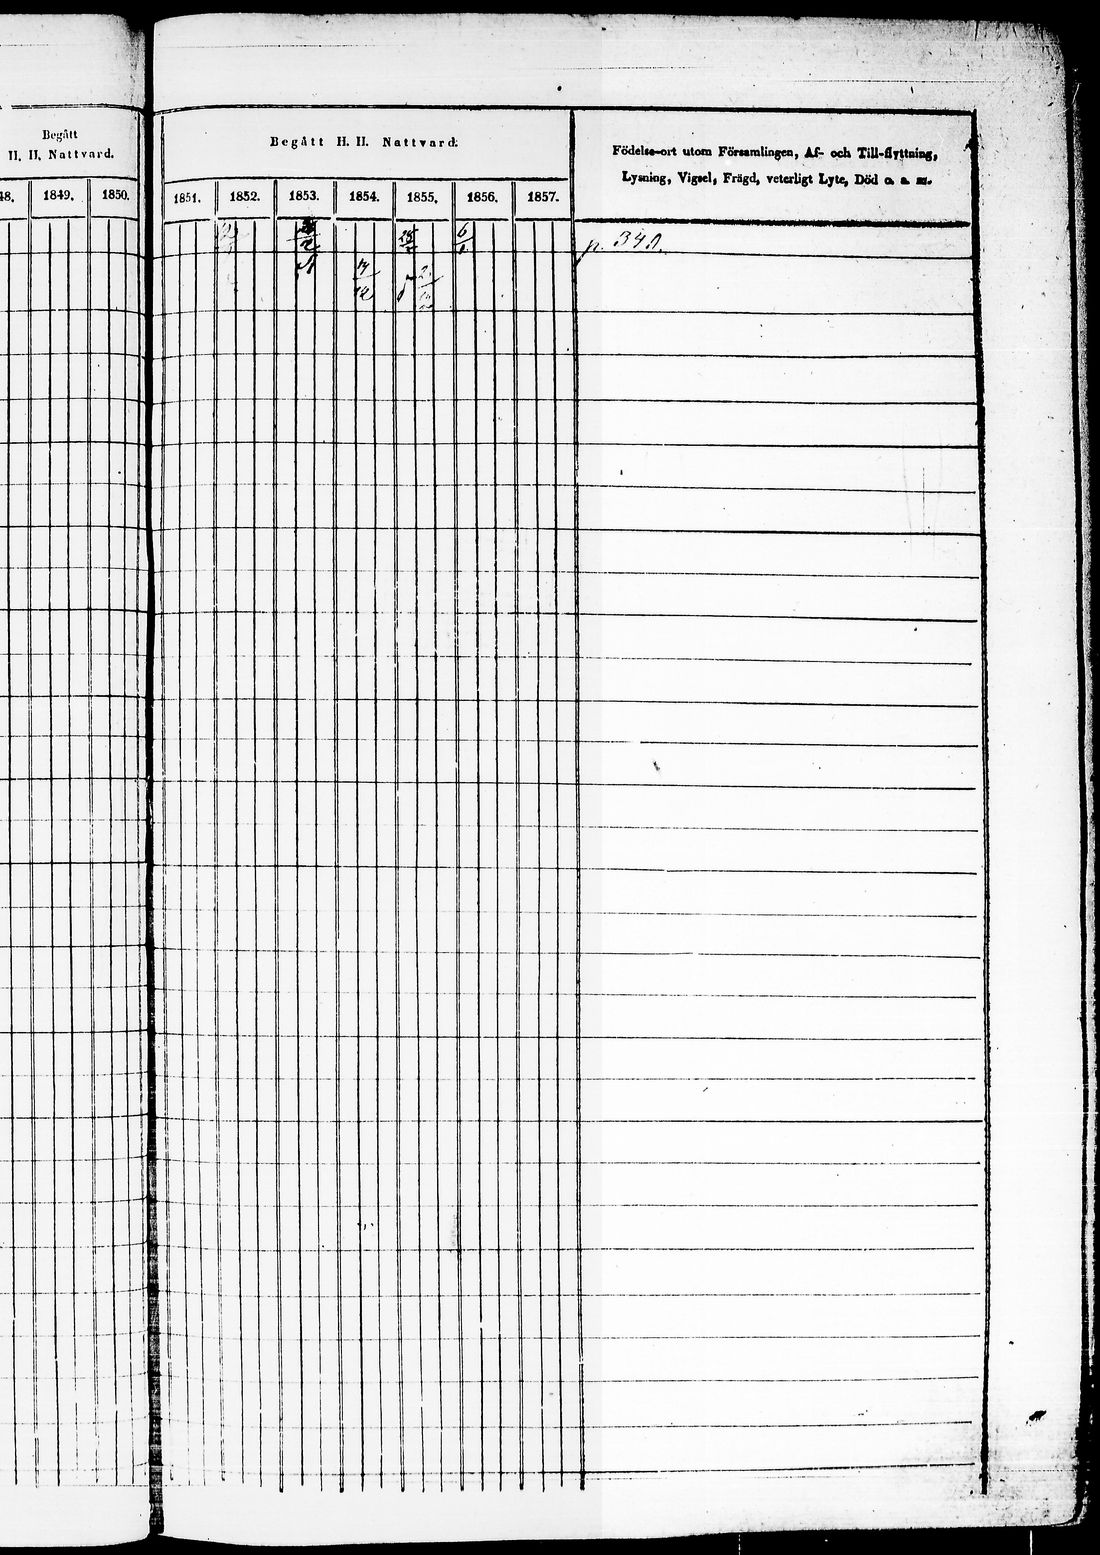 Begått
H. H. Nattvard.
48. 1849. 1850.
Begått H. H. Nattvard.
1851. 1852. 1853. 1854. 1855. 1856. 1857.
Födelse-ort utom Församlingen, Af- och Till-flyttning,
Lysning, Vigsel, Frägd, veterligt Lyte, Död o. s. m.
p. 340.